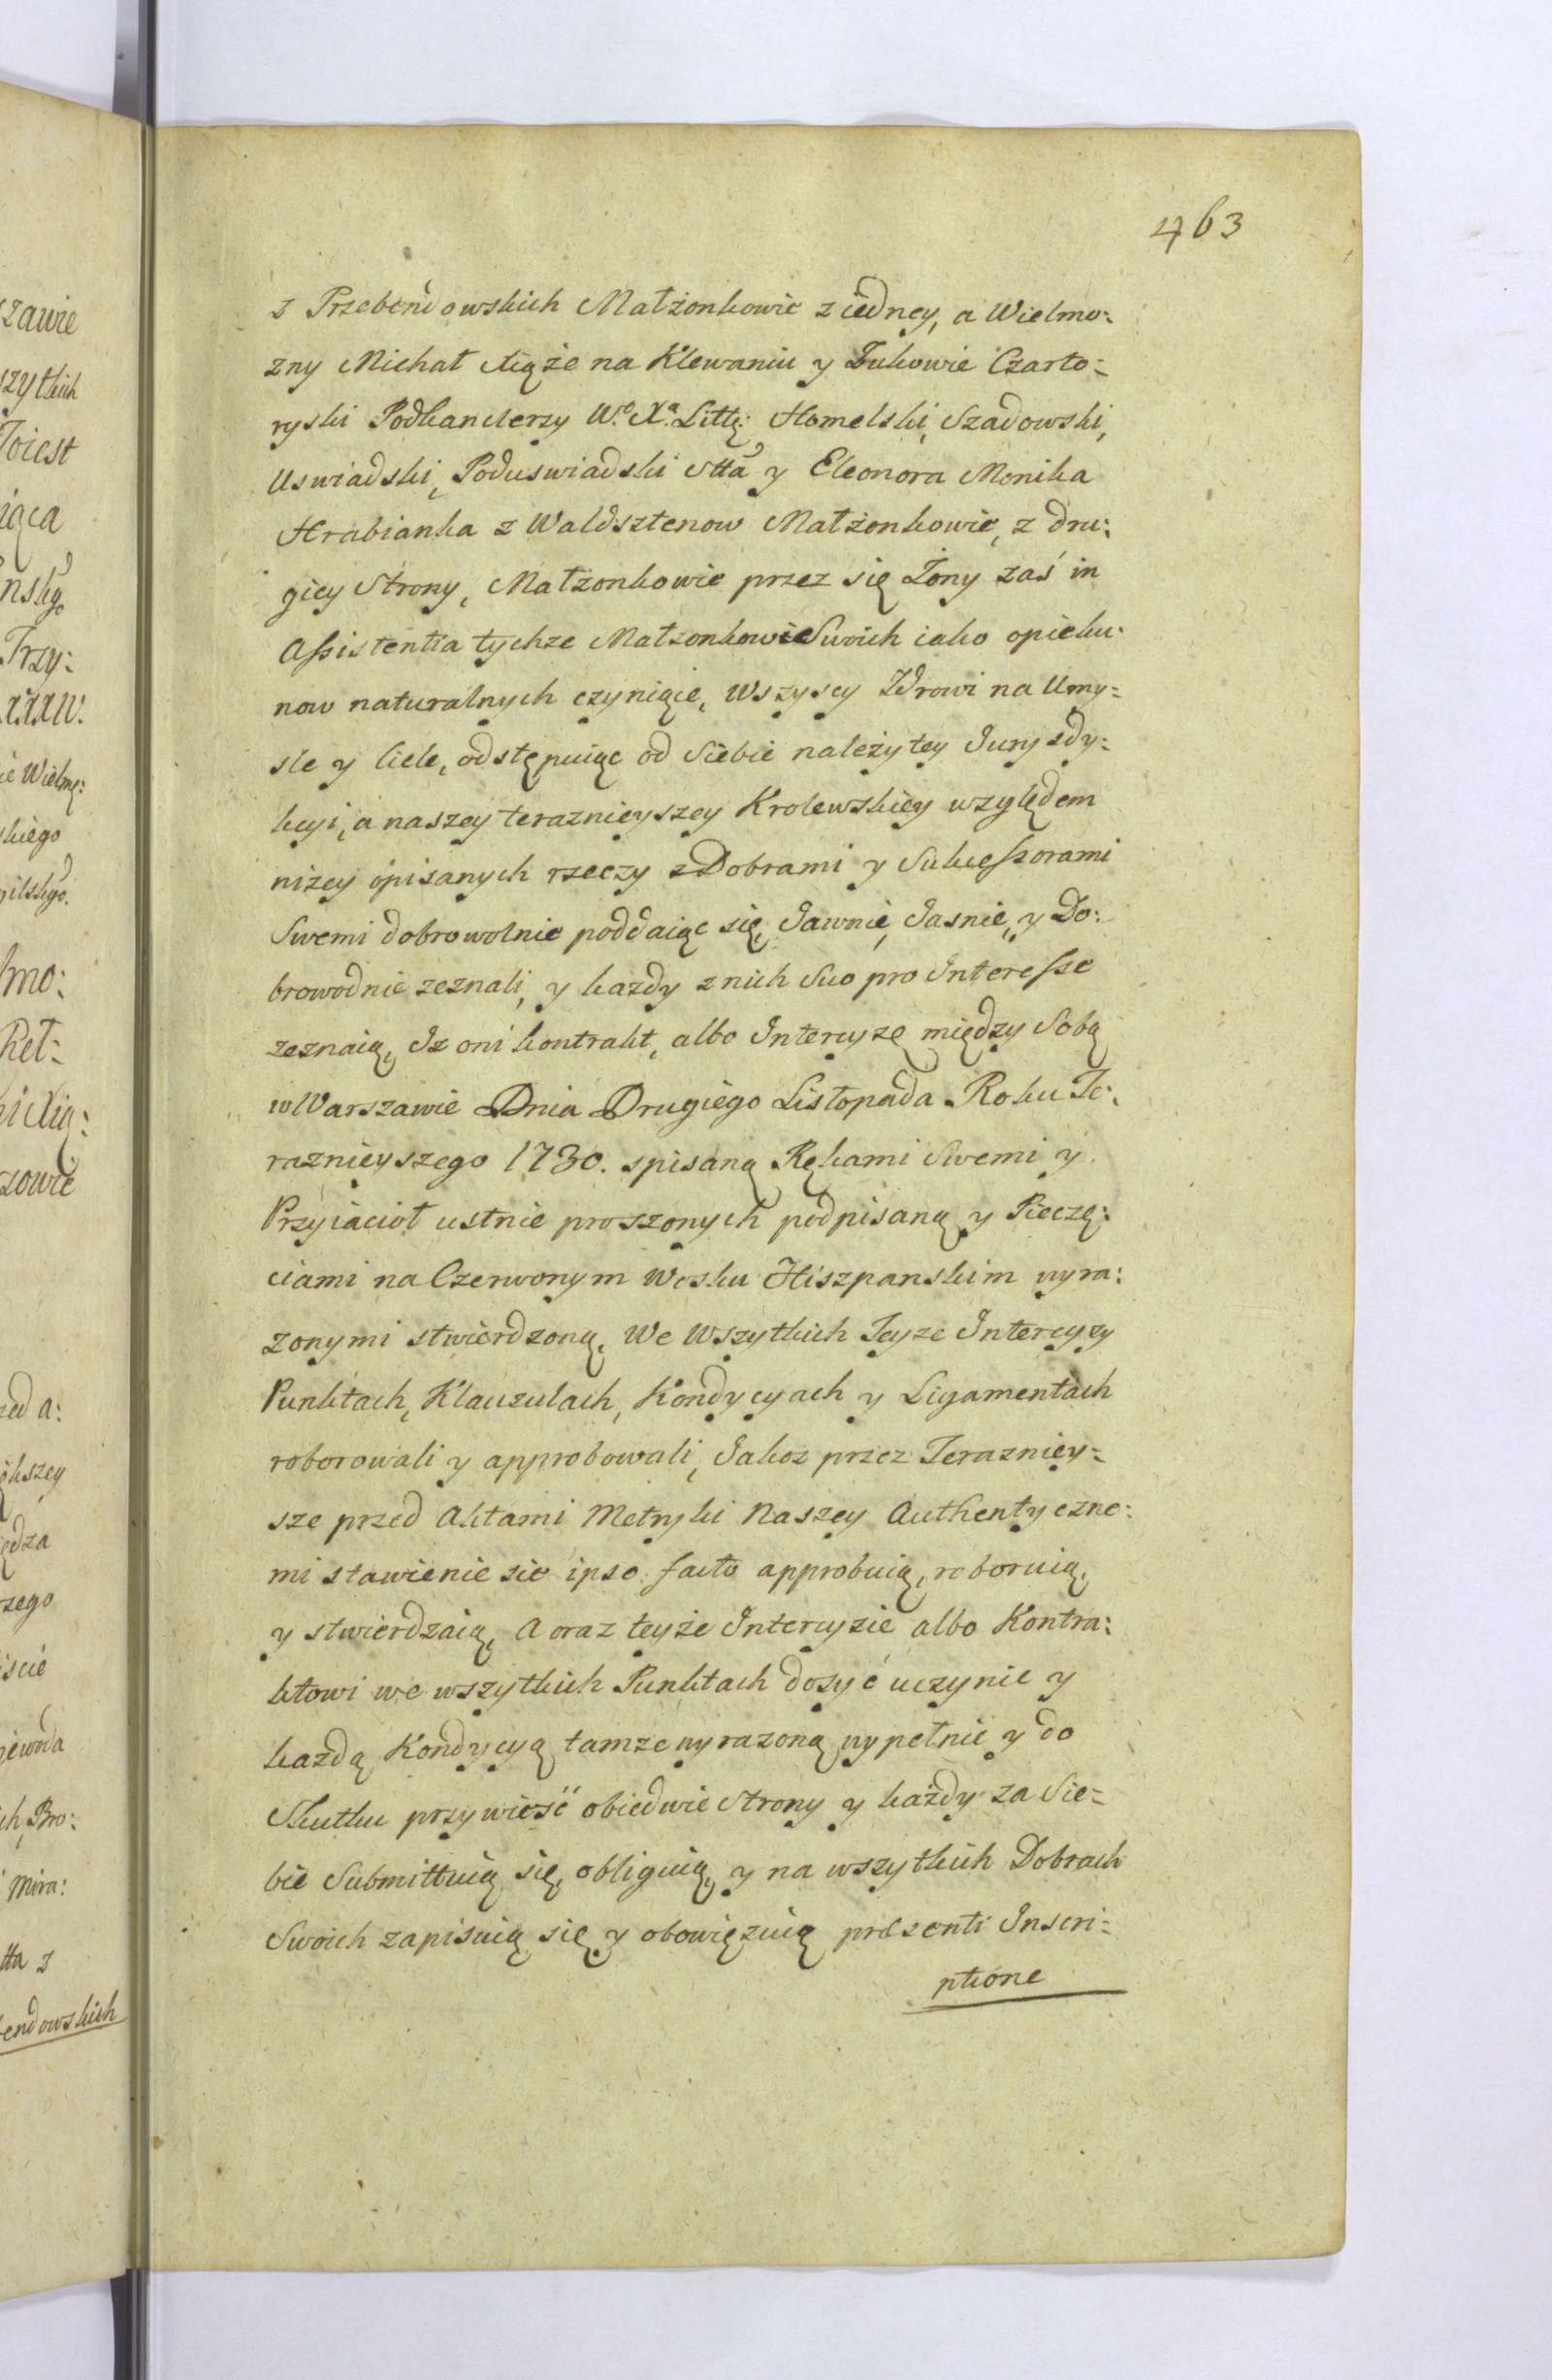 463
z Przebendowskich Małżonkowie z iedney, a Wielmo:
zny Michał Xiąże na Klewaniu y Żukowie Czarto=
ryski Podkanclerzy W.º X.ª Littᶒ: Homelski, Szadowski,
Uswiadski, Poduswiadski Stta y Eleonora Monika
Hrabianka z Waldsztenow Małżonkowie, z dru:
giey Strony, Małzonkowie przez się Żony zaś in
Assistentia tychze Małzonkow Swoich iako opieku:
now naturalnych czyniące, Wszyscy Zdrowi na Umy=
sle y Ciele, odstępuiąc od Siebie należytey Jurysdy:
kcyi, a naszey teraznieyszey Krolewskiey względem
niżey opisanych rzeczy z Dobrami y Sukcessorami
Swemi dobrowolnie poddaiąc się, Jawnie, Jasnie, y Do:
browodnie zeznali, y każdy z nich Suo pro Interesse
zeznaią, Iz oni kontrakt, albo Intercyzę między Sobą
w Warszawie Dnia Drugiego Listopada Roku Te:
raznieyszego 1730. spisaną Rękami Swemi y
Przyiacioł ustnie proszonych podpisaną y Pieczę:
ciami na Czerwonym Wosku Hiszpanskim wyra:
zonymi stwierdzoną, We Wszytkich Teyze Intercyzy
Punktach, Klauzulach, Kondycyach y Ligamentach
roborowali y approbowali, Jakoz przez Teraznіey=
sze przed Aktami Metryki Naszey Authentyczne:
mi stawienie sie ipso facto approbuią, roboruią,
y stwierdzaią, A oraz teyże Intercyzie albo Kontra:
ktowi we wszytkich Punktach dosyć uczynic y
każdą Kondycyą tamze wyrazoną wypełnic y do
Skutku przywieść obiedwie Strony y każdy za Sie=
bie Submittuią się, obliguią, y na wszytkich Dobrach
Swoich zapisuią się y obowięzuią præsenti Inscri=
ptione